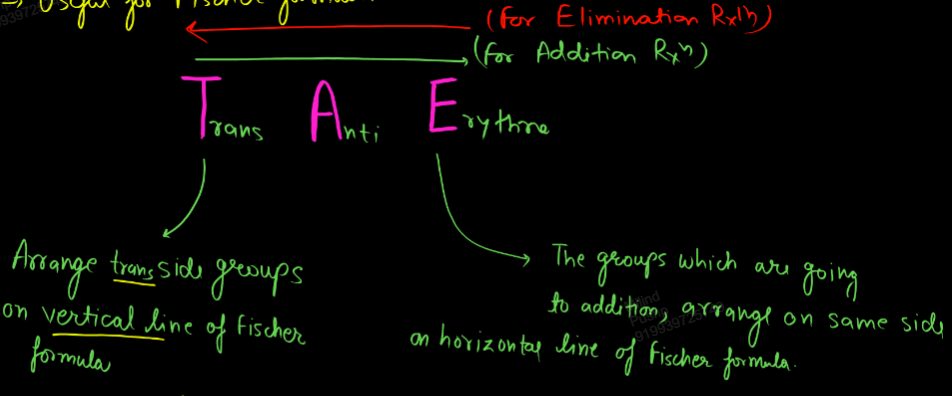 → Useful for Fischer formula.
(For Elimination Rx|n)
(for Addition Rxⁿ)
Trans Anti Erythro
Arrange trans side groups
on vertical line of Fischer
formula
The groups which are going
to addition, arrange on same side
on horizontal line of Fischer formula.